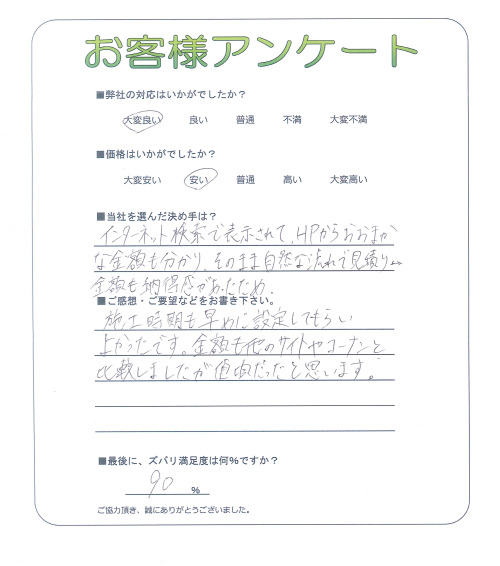 お客様アンケート
■弊社の対応はいかがでしたか？
大変良い 良い 普通 不満 大変不満
■価格はいかがでしたか？
大変安い 安い 普通 高い 大変高い
■当社を選んだ決め手は？
インターネット検索で表示されて、HPからおおまか
な金額も分かり、そのまま自然な流れで見積り
金額も納得感があったため。
■ご感想・ご要望などをお書き下さい。
施工時期も早めに設定してもらい
よかったです。金額も他のサイトやコーナンと
比較しましたが値頃だったと思います。
■最後に、ズバリ満足度は何％ですか？
90 %
ご協力頂き、誠にありがとうございました。